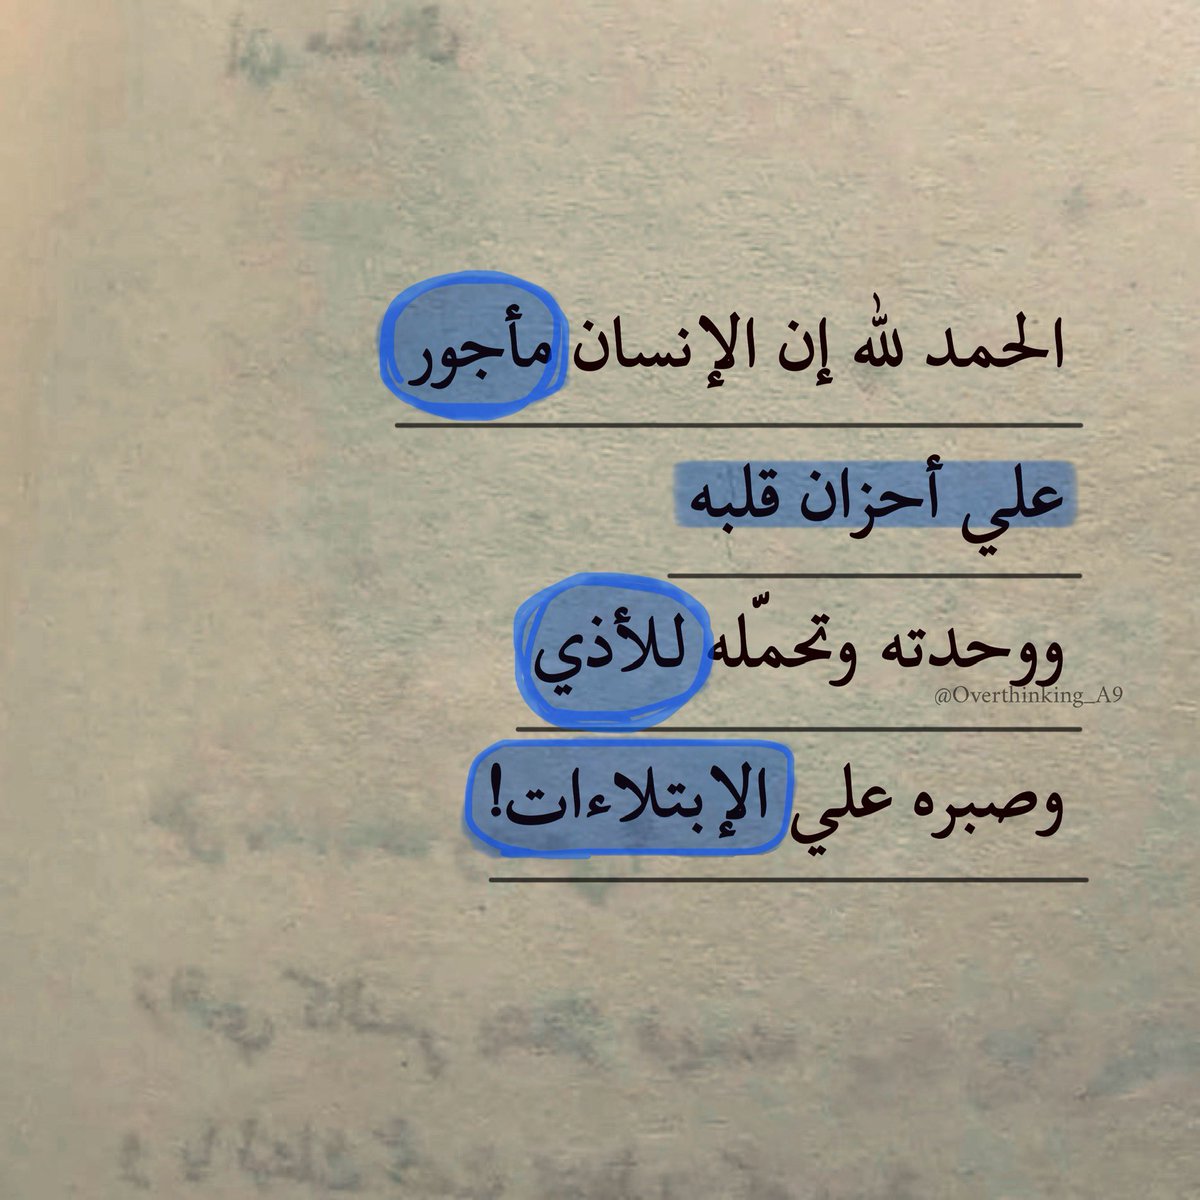 الحمد لله إن الإنسان مأجور
علي أحزان قلبه
ووحدته وتحمّله للأذي
@Overthinking_A9
وصبره علي الإبتلاءات!